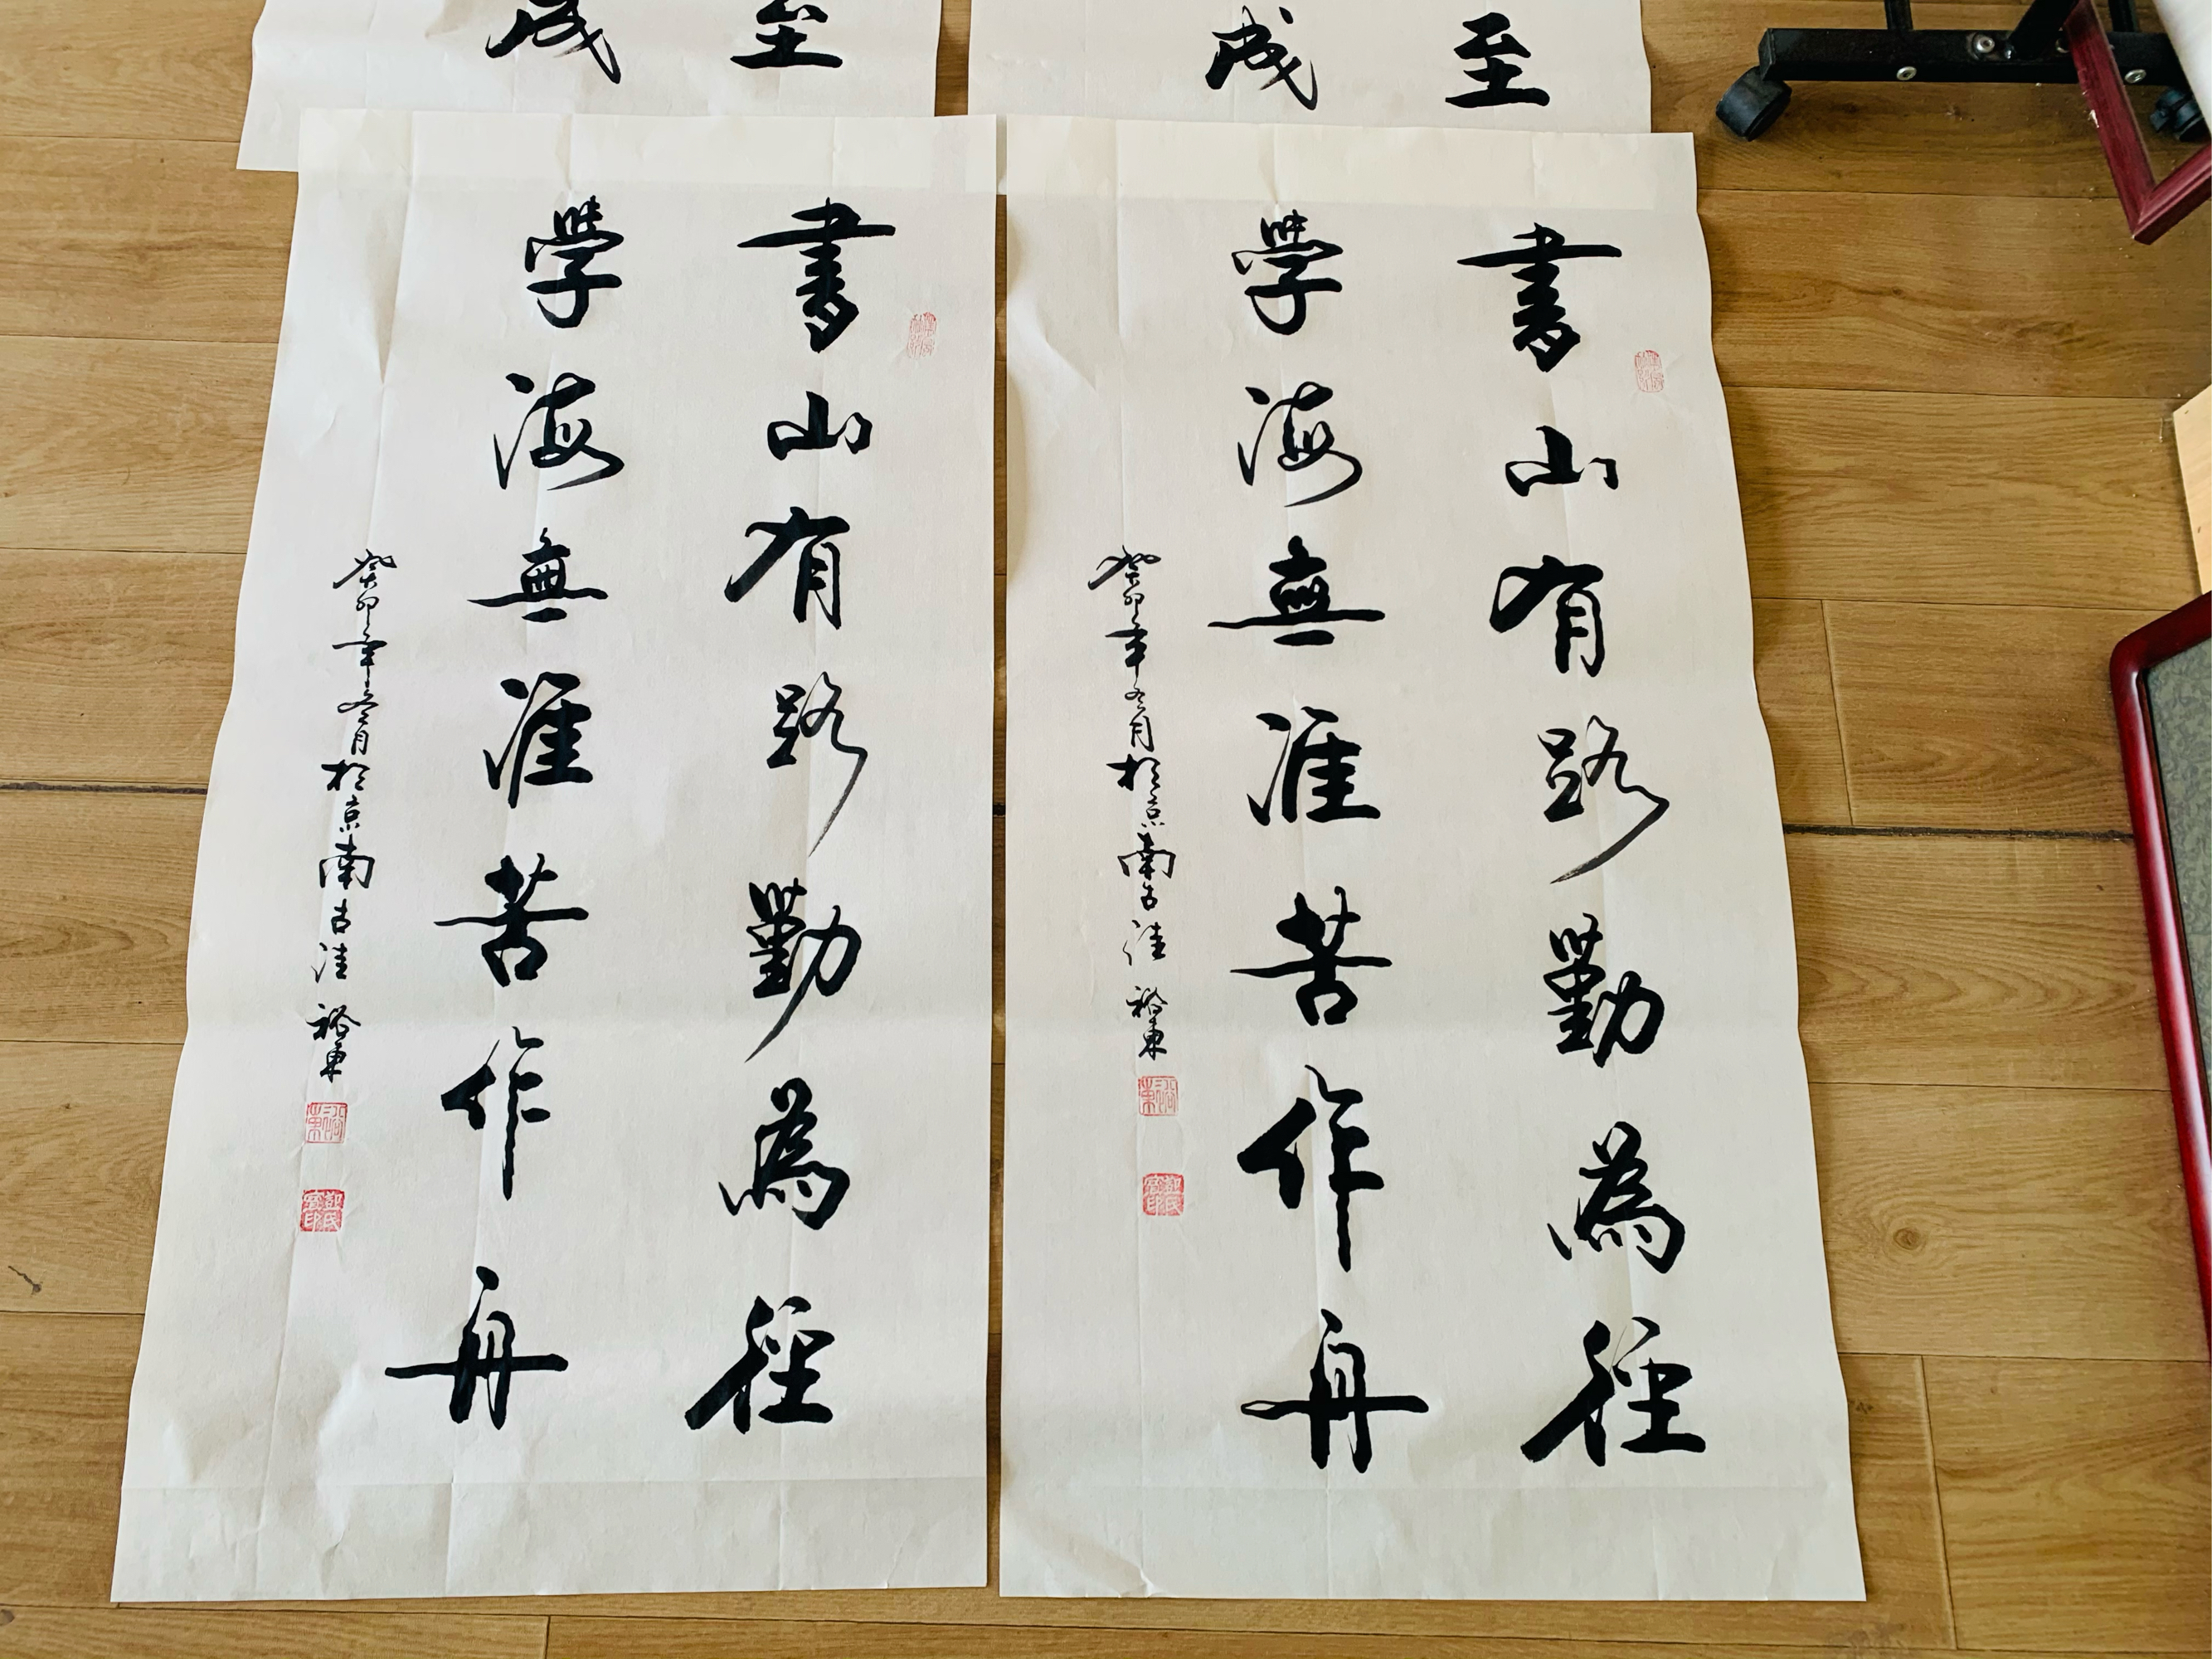 至
成
至
成
書山有路勤為徑
學海無涯苦作舟
癸卯年冬月於京南古洼裕東
書山有路勤為徑
學海無涯苦作舟
癸卯年冬月於京南古洼裕東